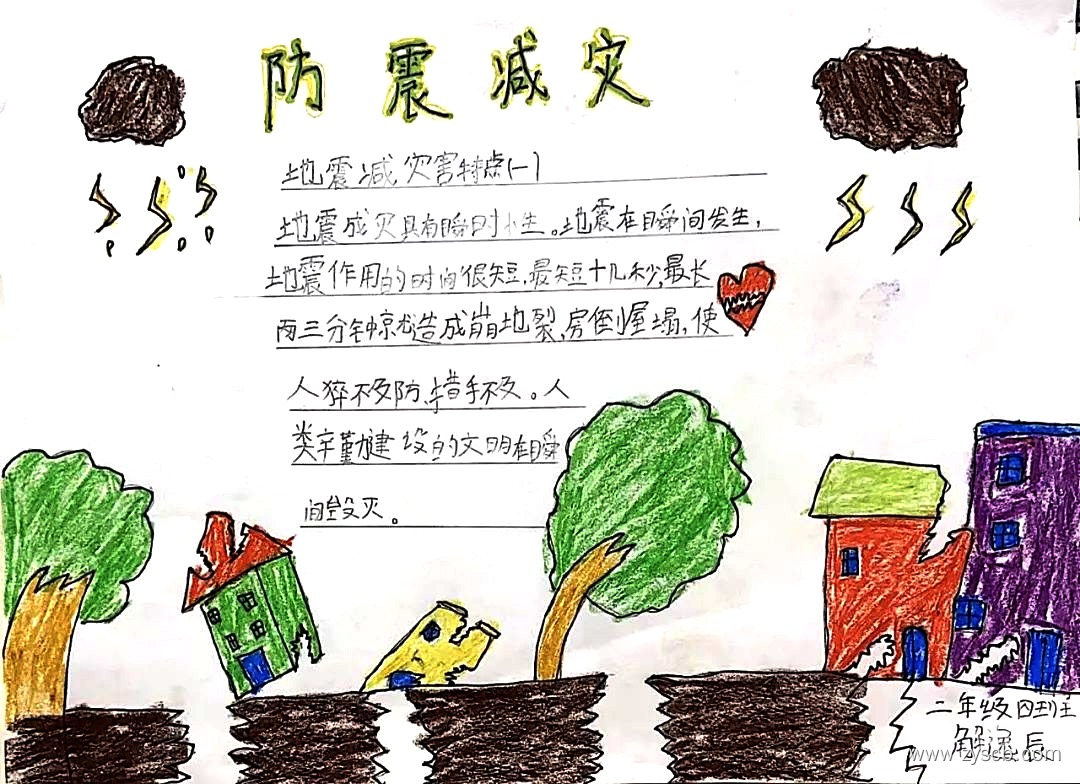 防震减灾
地震减灾害特点(一)
地震成灾具有瞬时性。地震在瞬间发生,
地震作用的时间很短,最短十几秒,最长
两三分钟就造成崩地裂,房倒屋塌,使
人猝不及防,措手不及。人
类辛勤建设的文明在瞬
间毁灭。
二年级四班
解